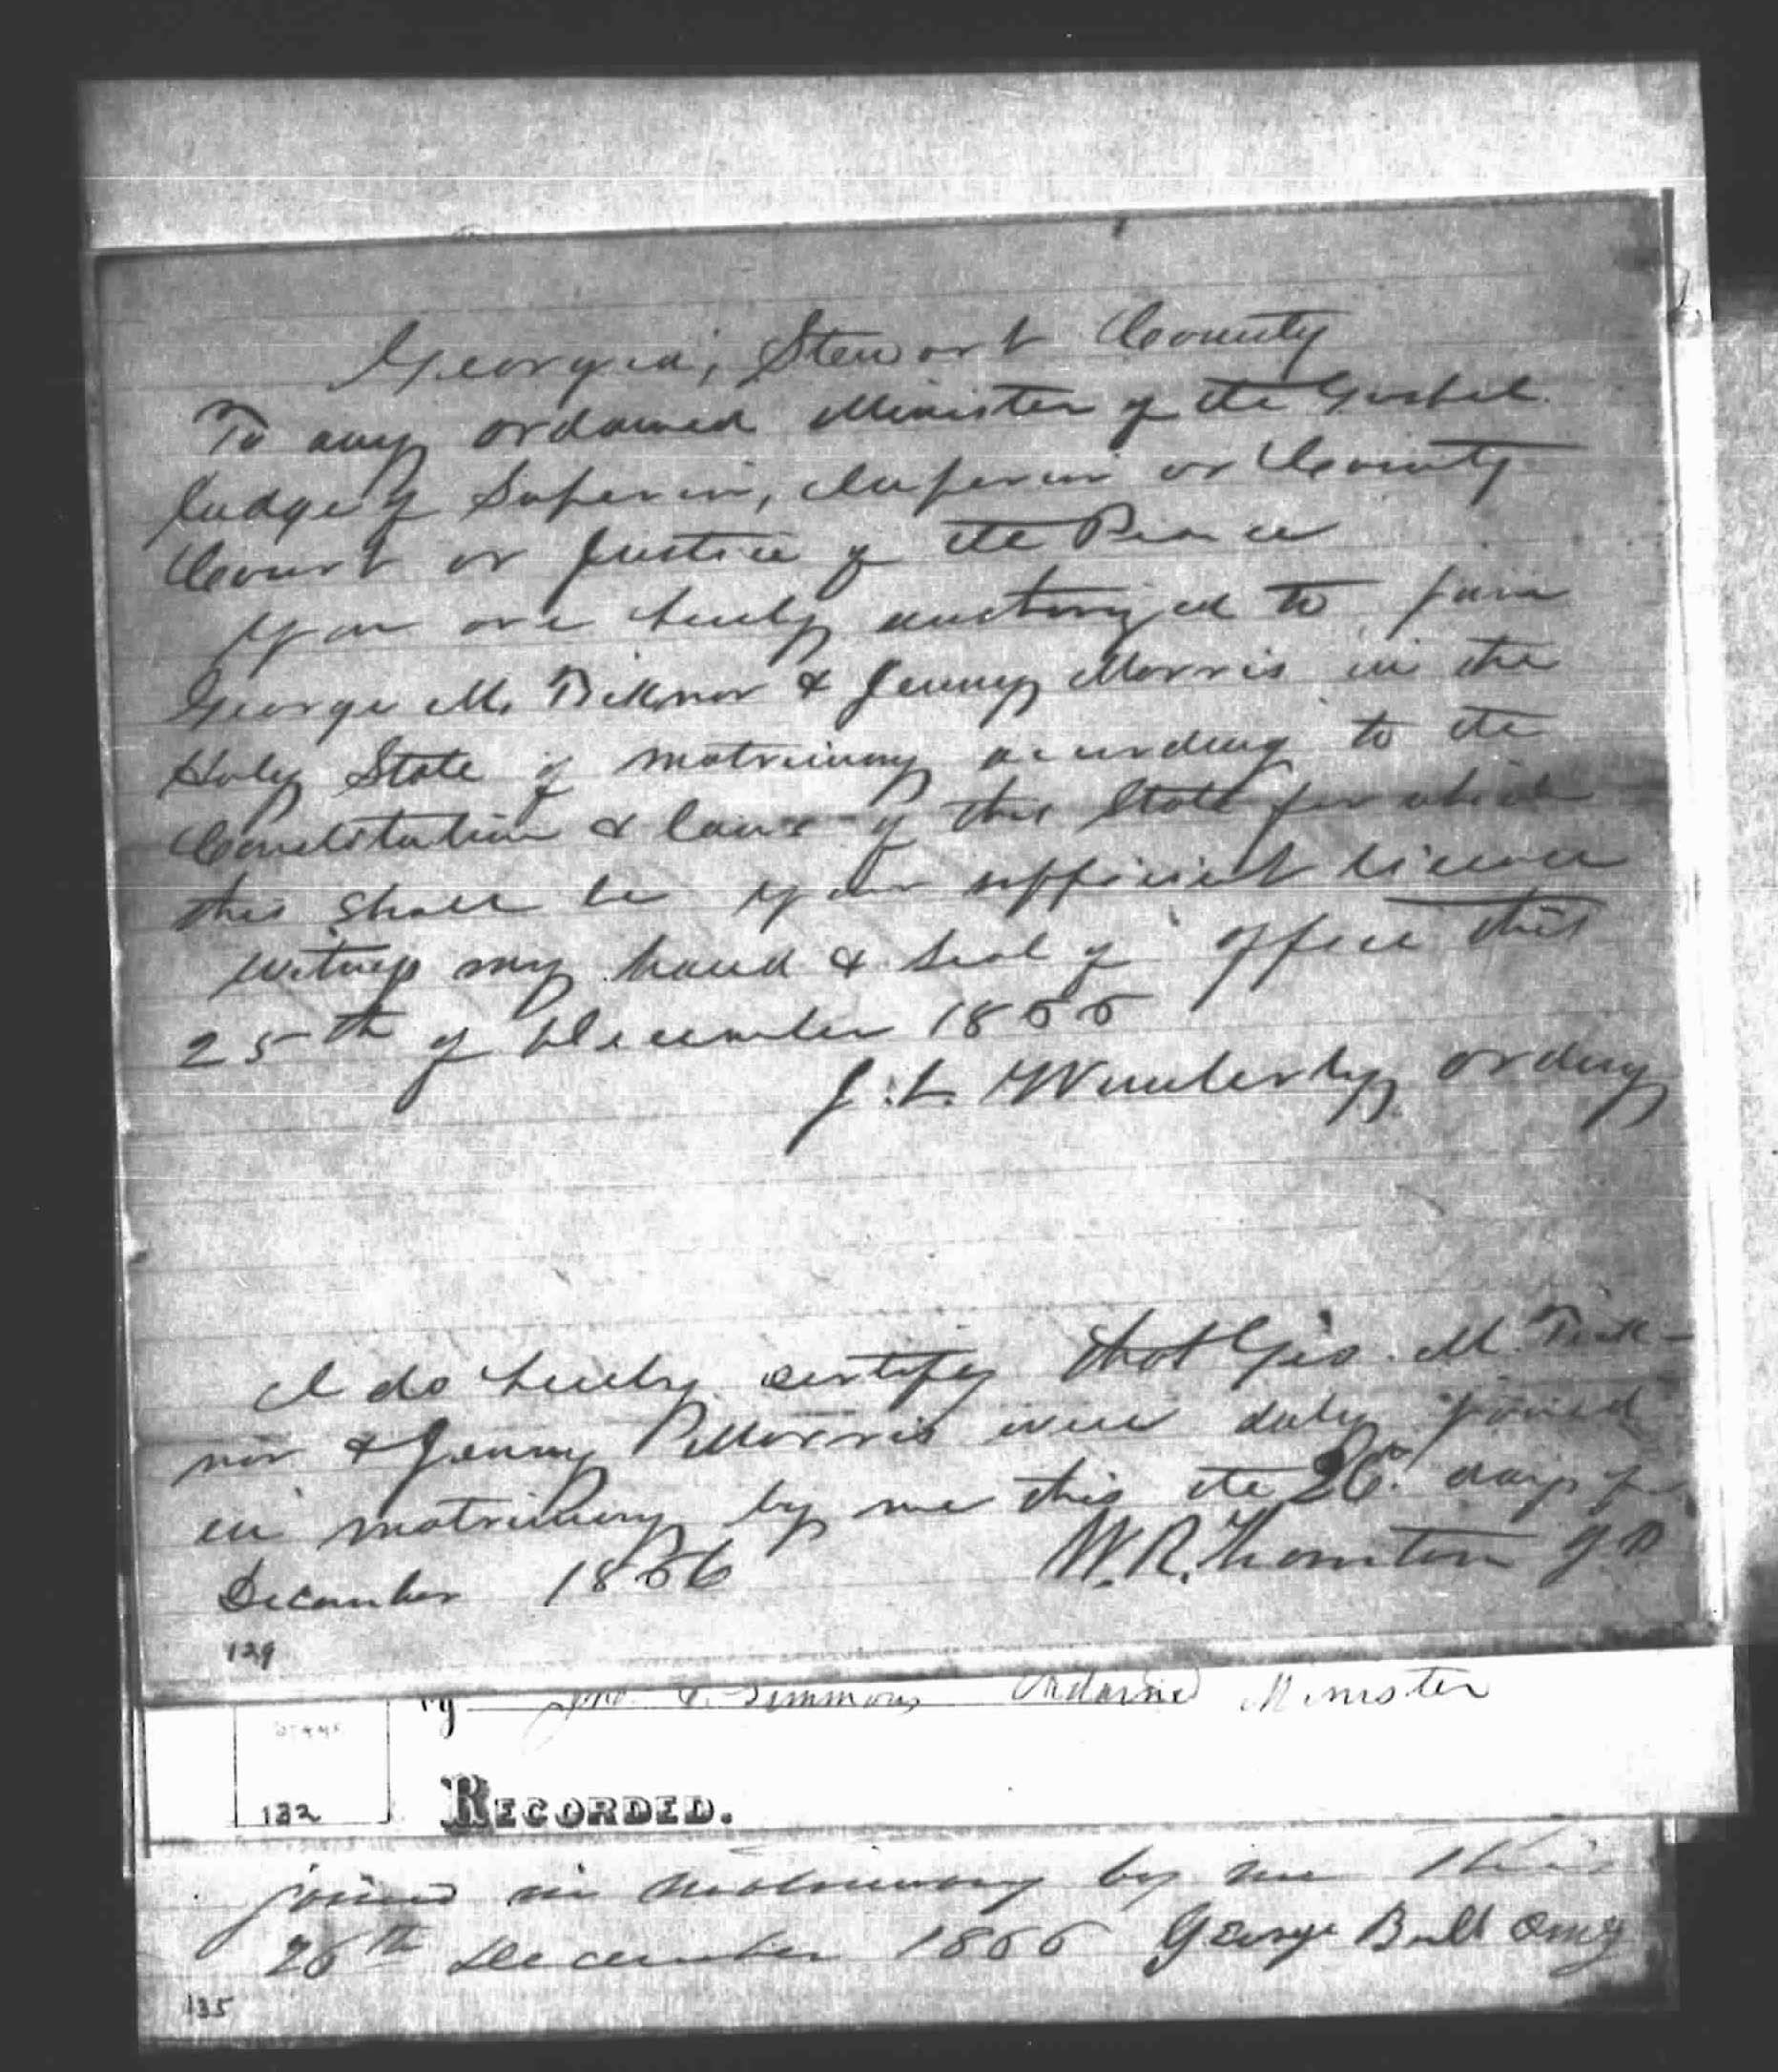 Georgia, Stewart County
To any ordained Minister of the Gospel
Judge of Superior, Inferior or County
Court or Justice of the Peace
You are hereby authorized to join
George M. Ticknor & Jenny Morris in the
Holy State of matrimony according to the
Constitution & laws of this State for which
this shall be your sufficient license
witness my hand & seal of office this
25th of December 1866
J. L. Wimberly ordny
I do hereby certify that Geo. M. Tick-
nor & Jenny P. Morris were duly joined
in matrimony by me this the 26th day of
December 1866 W. R. Thornton J. P.
129
by Jno. C. Simmons Ordained Minister
STAMP
132
RECORDED.
joined in matrimony by me this
26th December 1866 George Bull
135